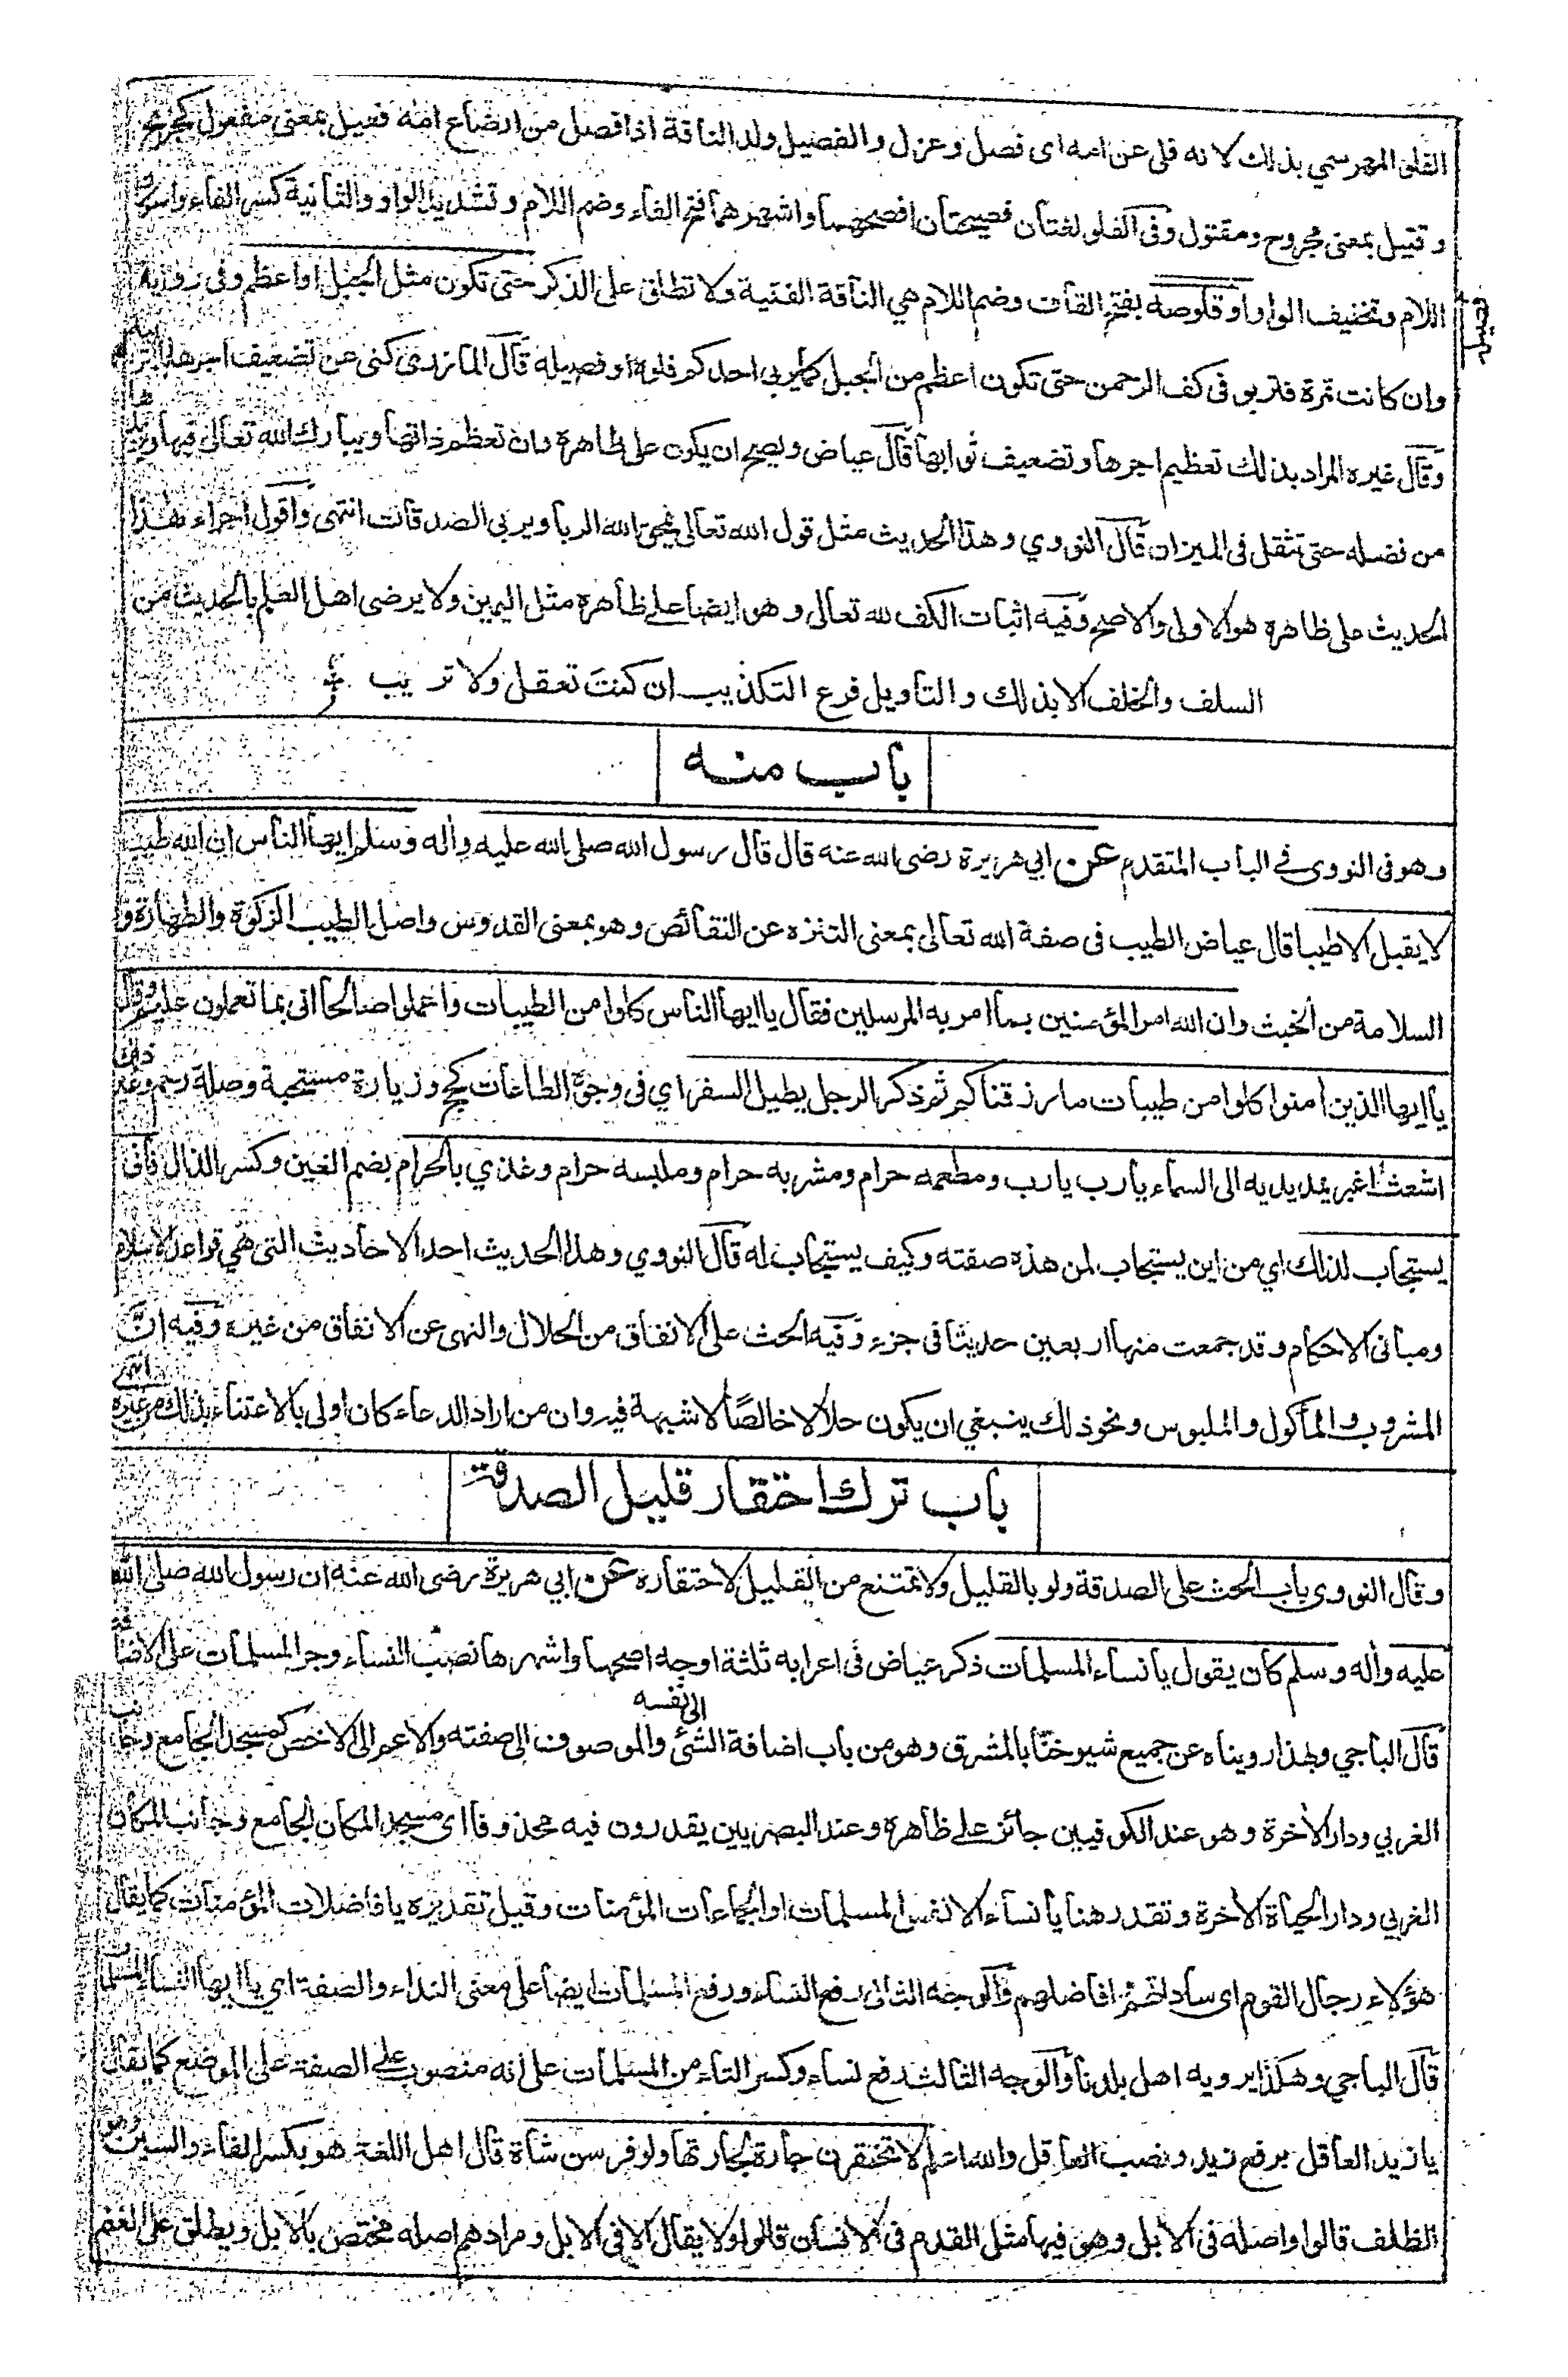 الفلو المهر سمي بذلك لانه فلى عن امه اى فصل وعزل والفصيل ولد الناقة اذا فصل من ارضاع امه فعيل بمعنى مفعول كجريح
وقتيل بمعنى مجروح ومقتول وفى الفلو لغتان فصيحتان افصحهما واشهرهما فتح الفاء وضم اللام وتشديد الواو والثانية كسر الفاء واسكان
اللام وتخفيف الواو او قلوصه بفتح القاف وضم اللام هي الناقة الفتية ولا تطلق على الذكر حتى تكون مثل الجبل او اعظم وفى رواية
وان كانت تمرة فتربو فى كف الرحمن حتى تكون اعظم من الجبل كما يربي احدكم فلوه او فصيله قال المازرى كنى عن تضعيف اجرها بالتربية
وقال غيره المراد بذلك تعظيم اجرها وتضعيف ثوابها قال عياض ويصح ان يكون على ظاهره وان تعظم ذاتها ويبارك الله تعالى فيها ويزيدها
من فضله حتى تثقل فى الميزان قال النووي وهذا الحديث مثل قول الله تعالى يمحق الله الربا ويربى الصدقات انتهى واقول اجراء هذا
الحديث على ظاهره هو الاولى والاصح وفيه اثبات الكف لله تعالى وهو ايضا على ظاهره مثل اليمين ولا يرضى اهل العلم بالحديث من
السلف والخلف الا بذلك والتأويل فرع التكذيب ان كنت تعقل ولا تريب
باب منه
وهو فى النووى في الباب المتقدم عن ابي هريرة رضى الله عنه قال قال رسول الله صلى الله عليه واله وسلم ايها الناس ان الله طيب
لا يقبل الا طيبا قال عياض الطيب فى صفة الله تعالى بمعنى التنزه عن النقائص وهو بمعنى القدوس واصل الطيب الزكوة والطهارة و
السلامة من الخبث وان الله امر المؤمنين بما امر به المرسلين فقال يا ايها الناس كلوا من الطيبات واعملوا صالحا انى بما تعملون عليم وقال
يا ايها الذين امنوا كلوا من طيبات ما رزقناكم ثم ذكر الرجل يطيل السفر اي فى وجوه الطاعات كحج وزيارة مستحبة وصلة رحم وغير ذلك
اشعث اغبر يمد يديه الى السماء يارب يارب ومطعمه حرام ومشربه حرام وملبسه حرام وغذي بالحرام بضم الغين وكسر الذال فانى
يستجاب لذلك اي من اين يستجاب لمن هذه صفته وكيف يستجاب له قال النووي وهذا الحديث احد الاحاديث التى هي قواعد الاسلام
ومبانى الاحكام وقد جمعت منها اربعين حديثا فى جزء وفيه الحث على الانفاق من الحلال والنهى عن الانفاق من غيره وفيه ان
المشروب والمأكول والملبوس ونحو ذلك ينبغي ان يكون حلالا خالصا لا شبهة فيه وان من اراد الدعاء كان اولى بالاعتناء بذلك من غيره انتهى
باب ترك احتقار قليل الصدقة
وقال النووى باب الحث على الصدقة ولو بالقليل ولا تمتنع من القليل لاحتقاره عن ابي هريرة رضى الله عنه ان رسول الله صلى الله
عليه واله وسلم كان يقول يا نساء المسلمات ذكر عياض فى اعرابه ثلثة اوجه اصحها واشهرها نصب النساء وجر المسلمات على الاضافة
قال الباجي وبهذا رويناه عن جميع شيوخنا بالمشرق وهو من باب اضافة الشئ الى نفسه والموصوف الى صفته والاعم الى الاخص كمسجد الجامع وجانب
الغربي ودار الاخرة وهو عند الكوفيين جائز على ظاهره وعند البصريين يقدرون فيه محذوفا اى مسجد المكان الجامع وجانب المكان
الغربي ودار الحياة الاخرة وتقدر هنا يا نساء الانفس المسلمات او الجماعات المؤمنات وقيل تقديره يا فاضلات المؤمنات كما يقال
هؤلاء رجال القوم اى ساداتهم وافاضلهم والوجه الثانى رفع النساء ورفع المسلمات ايضا على معنى النداء والصفة اي يا ايها النساء المسلمات
قال الباجي وهكذا يرويه اهل بلدنا والوجه الثالث رفع نساء وكسر التاء من المسلمات على انه منصوب على الصفة على الموضع كما يقال
يا زيد العاقل برفع زيد ونصب العاقل والله اعلم لا تحتقرن جارة لجارتها ولو فرسن شاة قال اهل اللغة هو بكسر الفاء والسين وهو
الظلف قالوا واصله فى الابل وهو فيها مثل القدم فى الانسان قالوا ولا يقال الا فى الابل ومرادهم اصله مختص بالابل ويطلق على الغنم